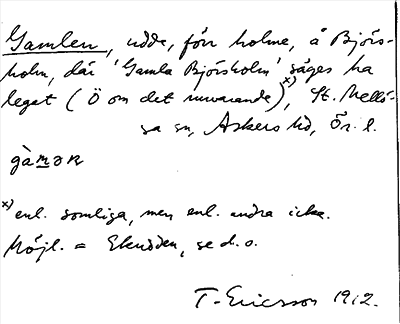 Gamlen, udde, förr holme, å Björs-
holm, där 'Gamla Björsholm' säges ha
legat (Ö om det nuvarande)x), St. Mellö-
sa sn, Askers hd, Ör. l.
gàmən
x) enl. somliga, men enl. andra icke.
Möjl. = Ekudden, se d. o.
T. Ericsson 1912.